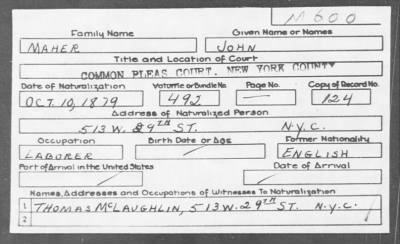 M600
Family Name Given Name or Names
MAHER JOHN
Title and Location of Court
COMMON PLEAS COURT, NEW YORK COUNTY
Date of Naturalization Volume or Bundle No. Page No. Copy of Record No.
OCT. 10, 1879 492 124
Address of Naturalized Person
513 W. 29TH ST. N.Y.C.
Occupation Birth Date or Age Former Nationality
LABORER ENGLISH
Port of Arrival in the United States Date of Arrival
Names, Addresses and Occupations of Witnesses To Naturalization
1 THOMAS MCLAUGHLIN, 513 W. 29TH ST. N.Y.C.
2